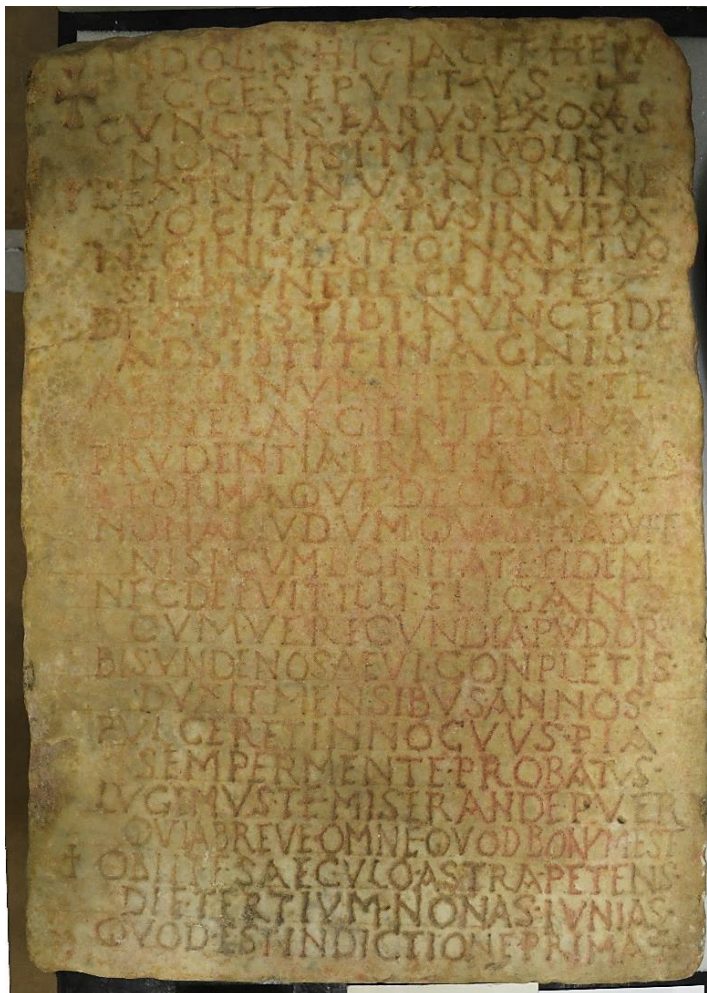 INDOLIS·HIC·IACIT·HEV
ECCE SEPVLTVS
CVNCTIS·CARVS·EXOSVS
NON·NISI·MALIVOLIS·
DEXTRIANVS·NOMINE
VOCITATATVS IN VITA·
NEC INMERITO·NAM TVO
SIC MVNERE CRISTE
DEXTRIS TIBI·NVNC FIDE
ADSISTIT·IN AGNIS·
AETERNVM·SPERANS·TE
SINE LARGIENTE DONVM·
PRVDENTIA ERAT PRAEDITVS
FORMAQVE DECORVS·
NON ALIVD VMQVAM HABVIT
NISI CVM BONITATE FIDEM
NEC DEFVIT ILLI ELIGANS
CVM VERECVNDIA PVDOR
BIS VNDENOS AEVI CONPLETIS·
DVXIT MENSIBVS ANNOS·
PVLCER ET INNOCVVS·PIA·
SEMPER MENTE·PROBATVS·
LVGIMVS·TE·MISERANDE PVER
QVIA BREVE·OMNE QVOD BONVM EST
OBIIT·E SAECVLO·ASTRA·PETENS·
DIE TERTIVM·NONAS·IVNIAS·
QVOD·EST·INDICTIONE·PRIMA